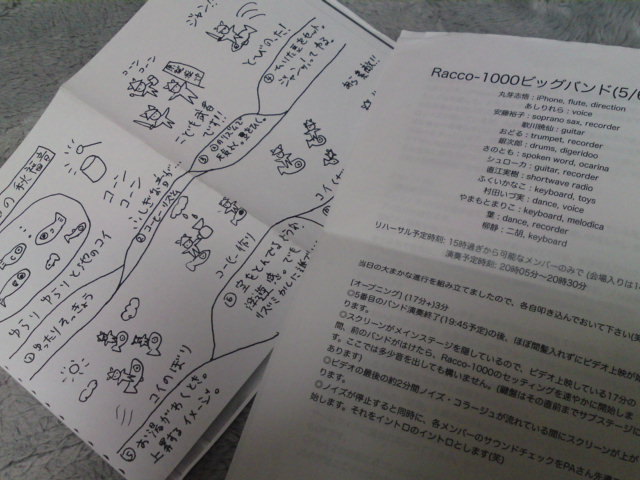 Racco-1000ビッグバンド(5/6
丸芽志悟 : iPhone, flute, direction
あしりれら : voice
安藤裕子 : soprano sax, recorder
歌川映仙 : guitar
おどる : trumpet, recorder
銀次郎 : drums, digeridoo
さのとも : spoken word, ocarina
シュローカ : guitar, recorder
直江実樹 : shortwave radio
ふくいかなこ : keyboard, toys
村田いづ実 : dance, voice
やまもとまりこ : keyboard, melodica
葉 : dance, recorder
柳静 : 二胡, keyboard
リハーサル予定時刻: 15時過ぎから可能なメンバーのみで (会場入りは1
演奏予定時刻: 20時05分〜20時30分
当日の大まかな進行を組み立てましたので、各自叩き込んでおいて下さい(笑
[オープニング] (17分+)3分
◎5番目のバンド演奏終了(19:45予定)の後、ほぼ間髪入れずにビデオ上映が始
ります。
◎スクリーンがメインステージを隠しているので、ビデオ上映している17分の
間、前のバンドがはけたら、Racco-1000のセッティングを速やかに開始しま
す。ここでは多少音を出しても構いません。(鍵盤はその直前までサブステージに
あります)
◎ビデオの最後の約2分間ノイズ・コラージュが流れている間にスクリーンが上が
ります。
◎ノイズが停止すると同時に、各メンバーのサウンドチェックをPAさん先導
始します。それをイントロのイントロとします(笑)
ジャン!!
とびのった!
コーン
コンコン
こでも試合
です!!
④ いった豆をセット。
ジャーッ!ってやる
③ ②のリズムで
ふしぎなお告げ…
② コーヒーリズム
コーン
コーン
ゆらり ゆらりと池のコイ
① ゆったりそっきょう
コーヒー作り
⑥ 空をとんでるような
浮遊感。でも
コイのぼり
⑤ お湯がわくとき。
上昇するイメージ。